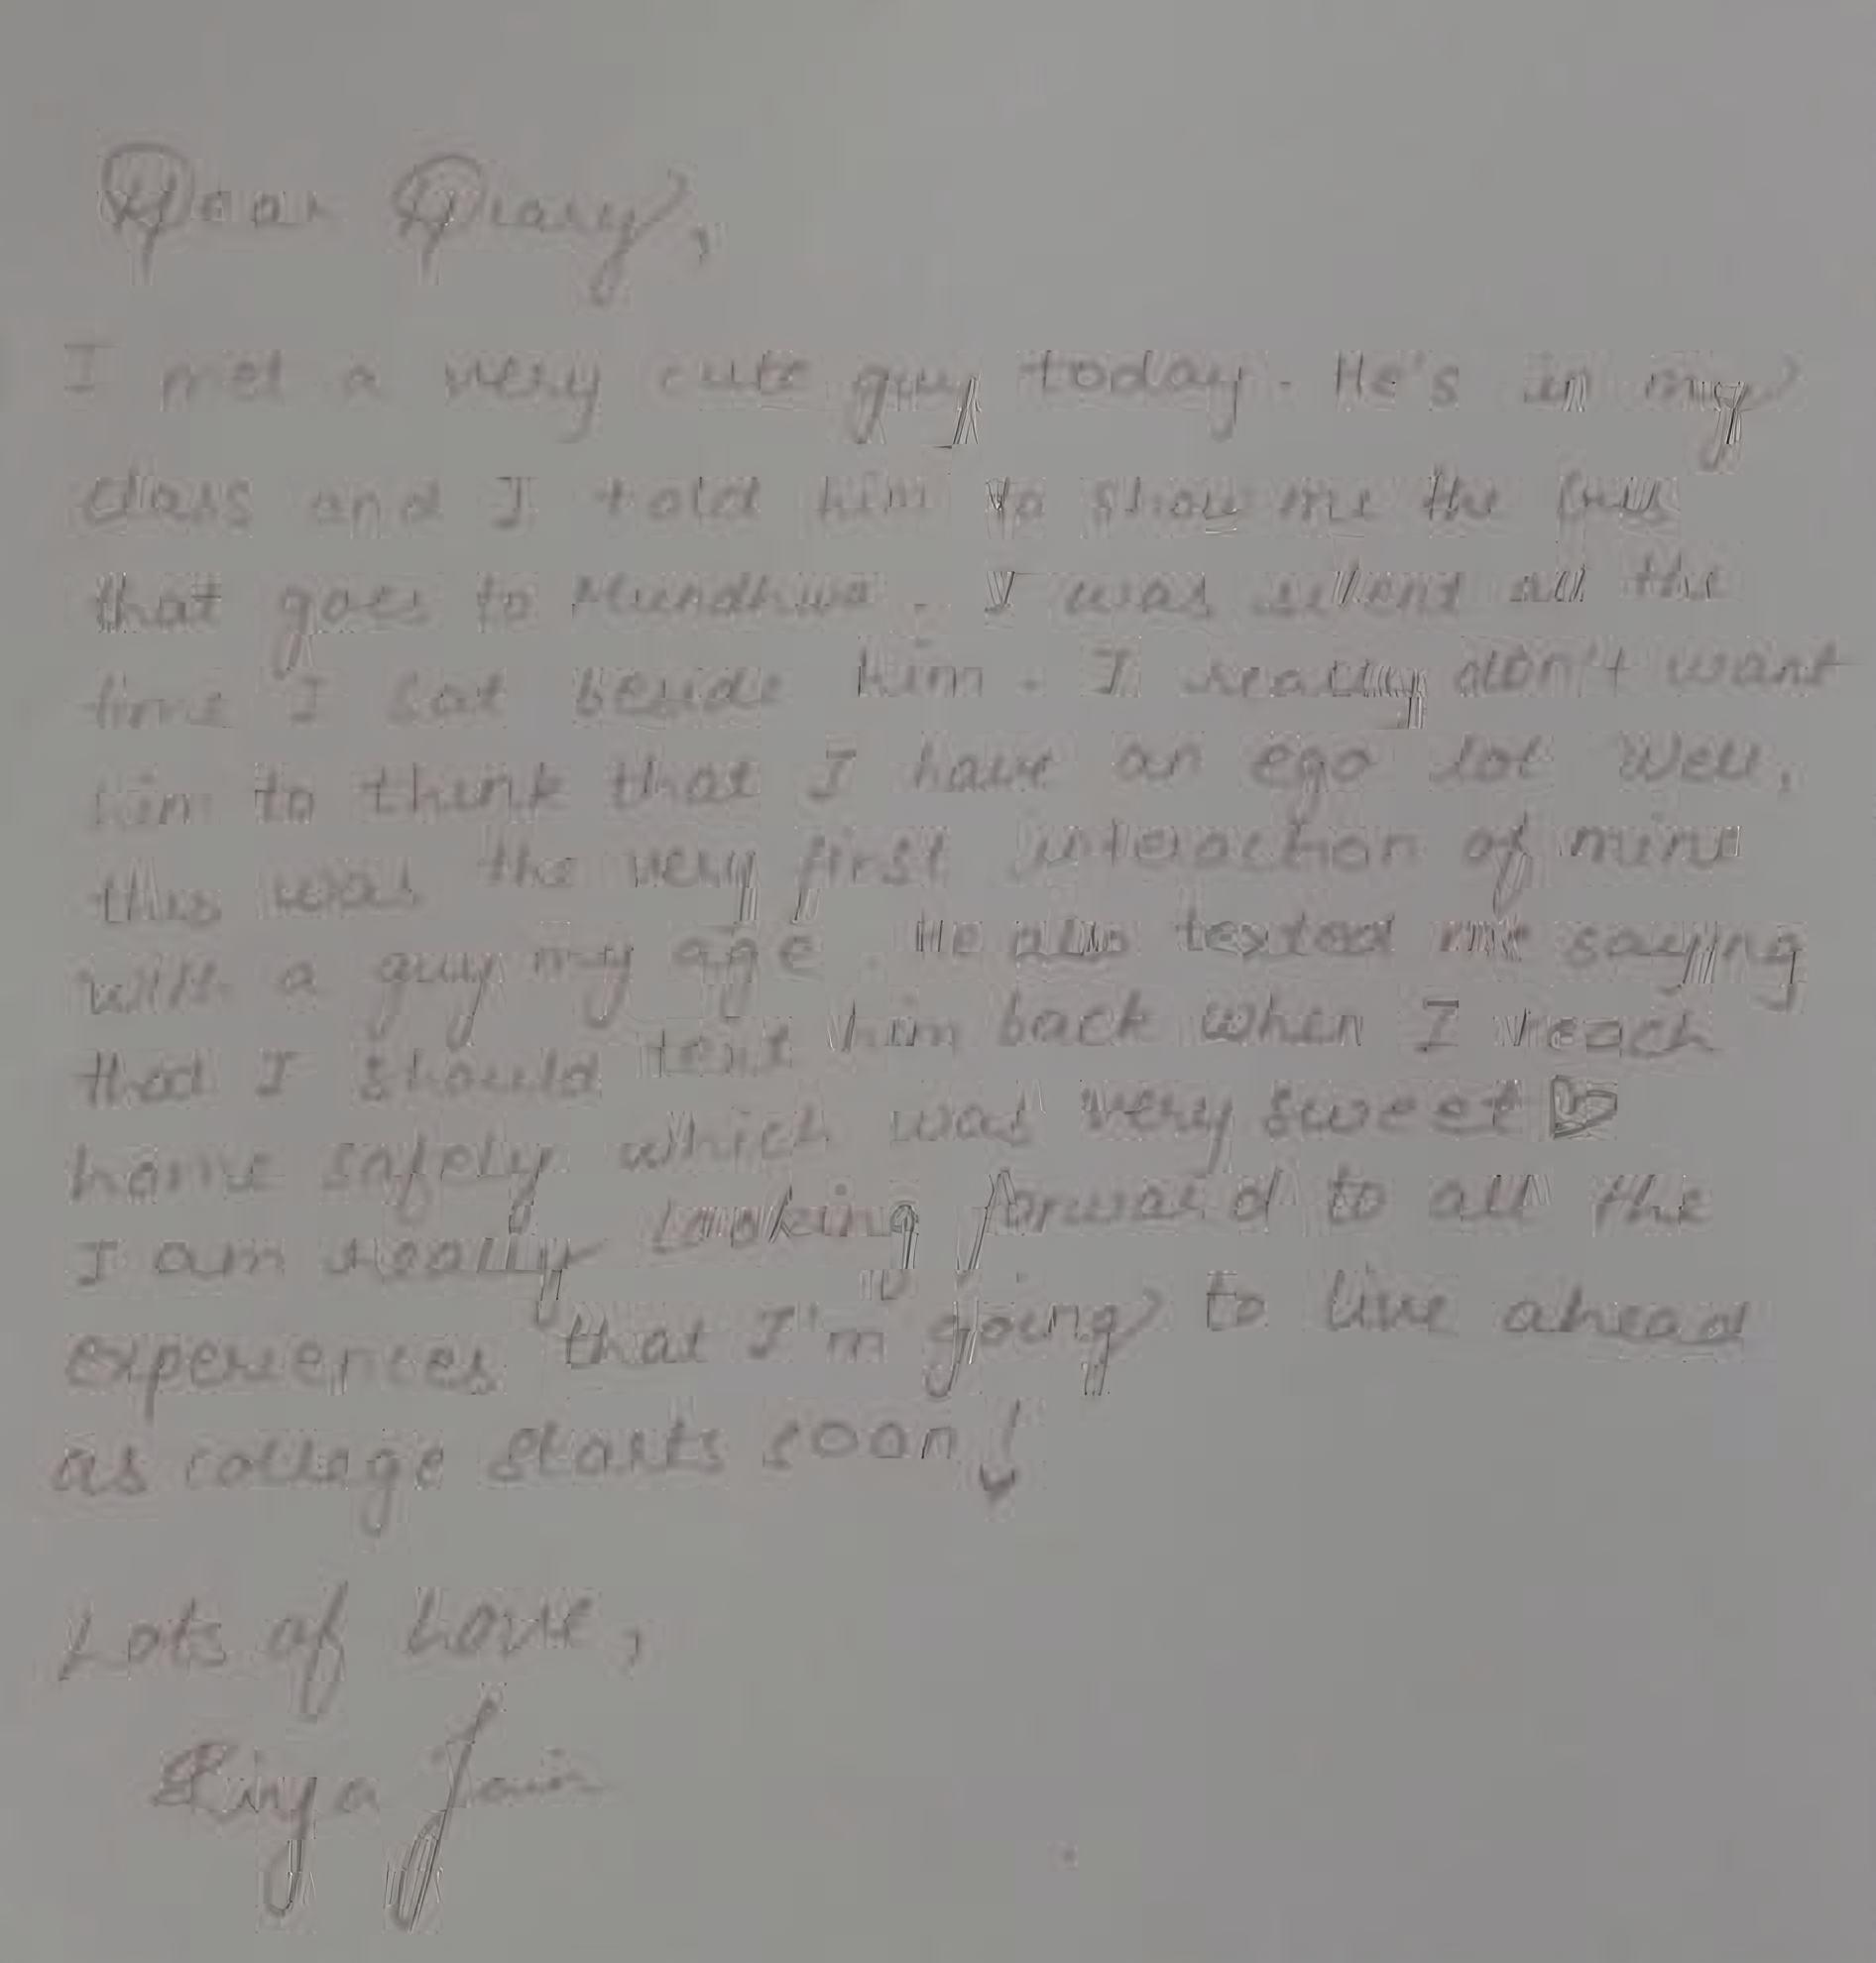 Dear Diary,
I met a very cute guy today. He's in my
class and I told him to show me the bus
that goes to Mundhwa. I was silent all the
time I sat beside him. I really don't want
him to think that I have an ego lol Well,
this was the very first interaction of mine
with a guy my age. He also texted me saying
that I should text him back when I reach
home safely which was very sweet
I am really looking forward to all the
experiences that I'm going to live ahead
as college starts soon!
Lots of Love,
Jain